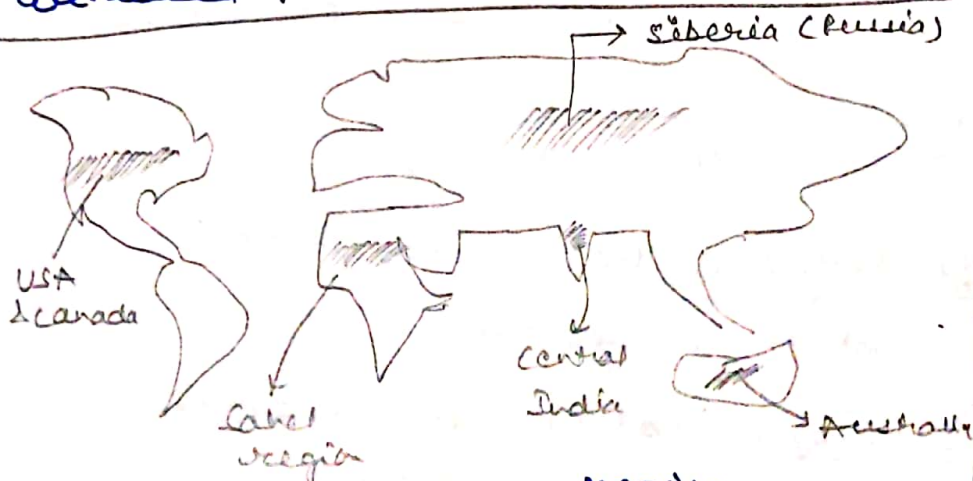 Siberia (Russia)
USA
& Canada
Sahel
region
Central
India
Australia